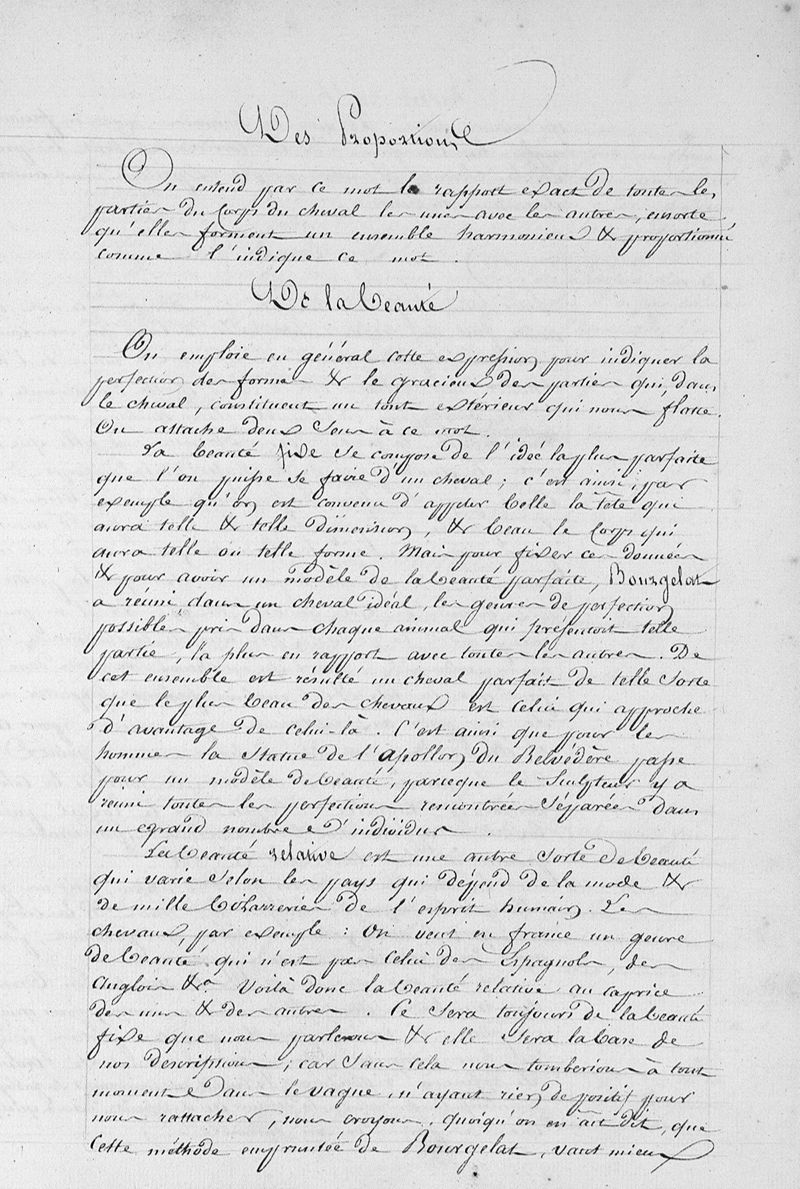 Des Proportions
On entend par ce mot le rapport exact de toutes les
parties du Corps du cheval les unes avec les autres, ensorte
qu'elles forment un ensemble harmonieux & proportionné
comme l'indique ce mot.
De la beauté
On emploie en général cette expression pour indiquer la
perfection des formes & le gracieux des parties qui, dans
le cheval, constituent un tout extérieur qui nous flatte.
On attache deux Sens à ce mot.
La beauté fixe se compose de l'idée la plus parfaite
que l'on puisse se faire d'un cheval; c'est ainsi, par
exemple qu'on est convenu d'appeler belle la tête qui
aura telle & telle dimension, & beau le Corps qui
aura telle ou telle forme. Mais pour fixer ces données
& pour avoir un modèle de la beauté parfaite, Bourgelat
a réuni dans un cheval idéal, les genres de perfection
possibles pris dans chaque animal qui présentoit telle
partie, la plus en rapport avec toutes les autres. De
cet ensemble est résulté un cheval parfait de telle Sorte
que le plus beau des chevaux est celui qui approche
d'avantage de celui-là. C'est ainsi que pour les
hommes la Statue de l'apollon du Belvédère passe
pour un modèle de beauté, parceque le Sculpteur y a
réuni toutes les perfections rencontrées Séparées dans
un grand nombre d'individus.
La beauté relative est une autre Sorte de beauté
qui varie Selon les pays qui dépend de la mode &
de mille bizarreries de l'esprit humain. Les
chevaux, par exemple: On veut en france un genre
de beauté qui n'est pas celui des Espagnols, des
Anglois &a. Voilà donc la beauté relative au caprice
des uns & des autres. Ce Sera toujours de la beauté
fixe que nous parlerons & elle Sera la base de
nos descriptions; car Sans cela nous tomberions à tout
moment dans le vague, n'ayant rien de positif pour
nous rattacher, nous croyons. quoiqu'on en ait dit, que
cette méthode empruntée de Bourgelat, vaut mieux